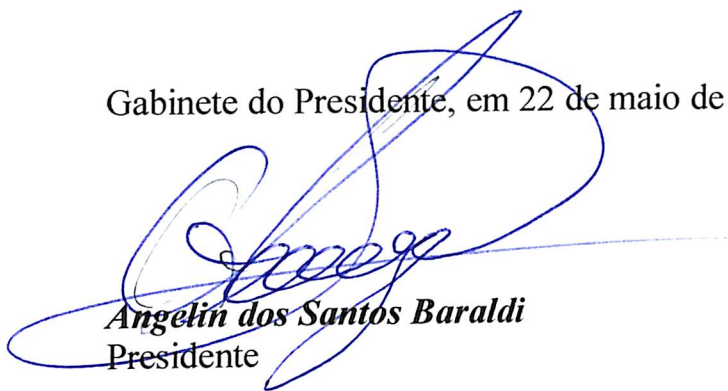 Gabinete do Presidente, em 22 de maio de
Angelin dos Santos Baraldi
Presidente